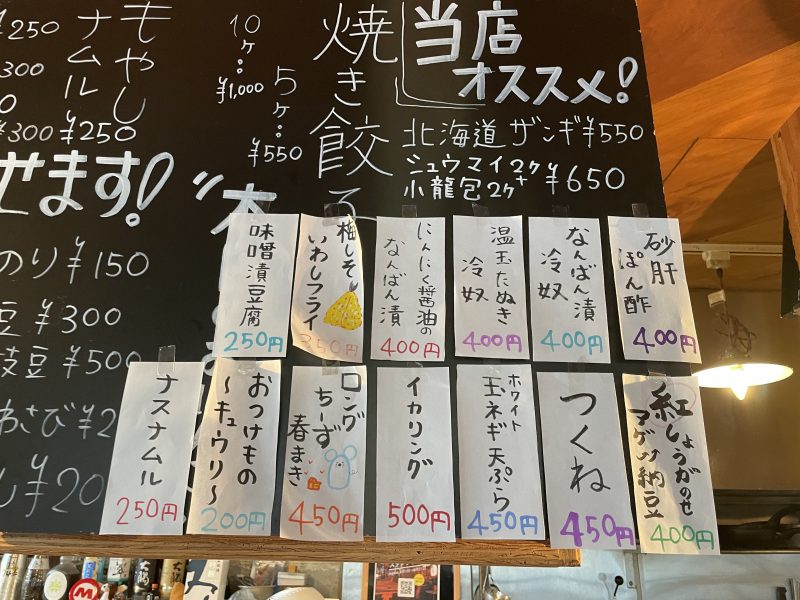 当店
オススメ!
北海道ザンギ¥550
シュウマイ2ケ
小龍包2ケ
¥650
焼き餃子
5ケ:
¥550
10ケ:
¥1,000
もやし
ナムル
¥250
¥250
¥300
¥300
せます!
のり¥150
豆¥300
枝豆¥500
わさび¥2
砂肝
ぽん酢
400円
なんばん漬
冷奴
400円
温玉たぬき
冷奴
400円
にんにく醤油の
なんばん漬
400円
梅しそ
いわしフライ
350円
味噌漬豆腐
250円
紅しょうがのせ
マグロ納豆
400円
つくね
450円
ホワイト
玉ネギ天ぷら
450円
イカリング
500円
ロング
ちーず
春まき
450円
おつけもの
～キュウリ～
200円
ナスナムル
250円